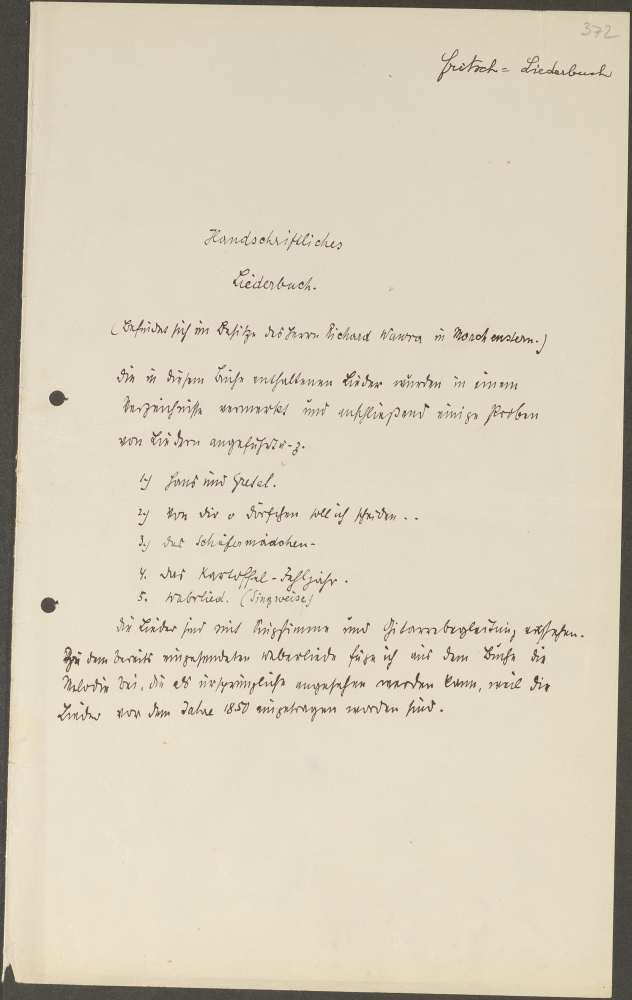 372
Fritsch = Liederbuch
Handschriftliches
Liederbuch.
(Befindet sich im Besitze des Herrn Richard Wawra in Morchenstern.)
Die in diesem Buche enthaltenen Lieder wurden in einem
Verzeichnisse vermerkt und anschließend einige Proben
von Liedern angeführt
1.) Hans und Gretel.
2.) Von dir o Dörfchen soll ich scheiden . .
3.) Das Schäfermädchen -
4. Das Kartoffel-Fehljahr .
5. Weberlied. (Singweise)
Die Lieder sind mit Singstimme und Gitarrebegleitung versehen.
Zu dem bereits eingesendeten Weberliede füge ich aus dem Buche die
Melodie bei, die als ursprüngliche angesehen werden kann, weil die
Lieder vor dem Jahre 1850 eingetragen worden sind.